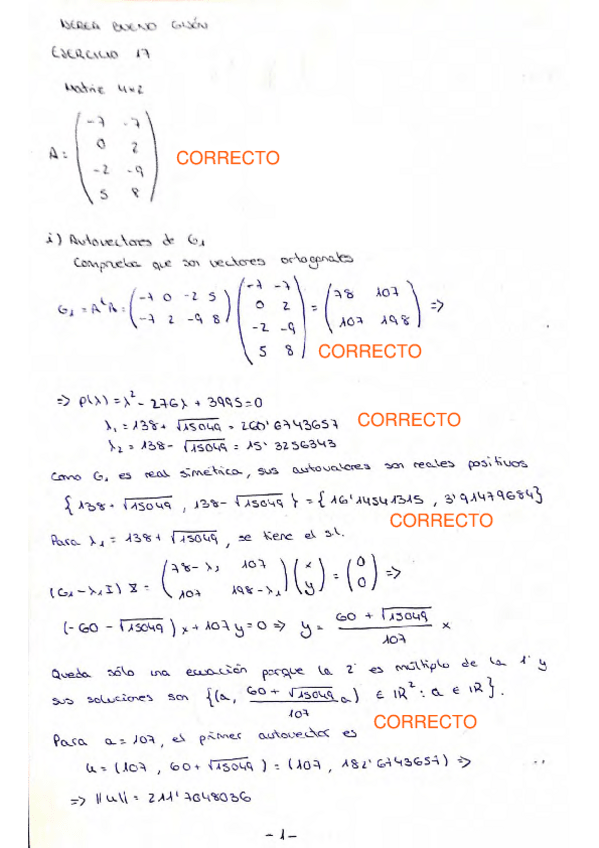 NEREA BUENO GIJÓN
EJERCICIO 17
Matriz 4x2
A = ( -7 -7
0 2
-2 -9
5 8 ) CORRECTO
i) Autovectores de G₁
Comprueba que son vectores ortogonales
G₁ = AᵗA = ( -7 0 -2 5 / -7 2 -9 8 ) ( -7 -7 / 0 2 / -2 -9 / 5 8 ) = ( 78 107 / 107 198 ) =>
CORRECTO
=> p(λ) = λ² - 276λ + 3995 = 0
λ₁ = 138 + √15049 = 260'6743657 CORRECTO
λ₂ = 138 - √15049 = 15'3256343
Como G₁ es real simétrica, sus autovalores son reales positivos
{ 138 + √15049 , 138 - √15049 } = { 16'14541315 , 3'91479684 }
CORRECTO
Para λ₁ = 138 + √15049 , se tiene el s.l.
(G₁ - λ₁I) X = ( 78 - λ₁ 107 / 107 198 - λ₁ ) ( x / y ) = ( 0 / 0 ) =>
(-60 - √15049) x + 107y = 0 => y = (60 + √15049) / 107 x
Queda sólo una ecuación porque la 2ª es múltiplo de la 1ª y
sus soluciones son { (a, (60 + √15049) / 107 a) ∈ ℝ² : a ∈ ℝ }.
CORRECTO
Para a = 107, el primer autovector es
u = (107 , 60 + √15049) = (107 , 182'6743657) =>
=> ||u|| = 211'7048036
- 1 -